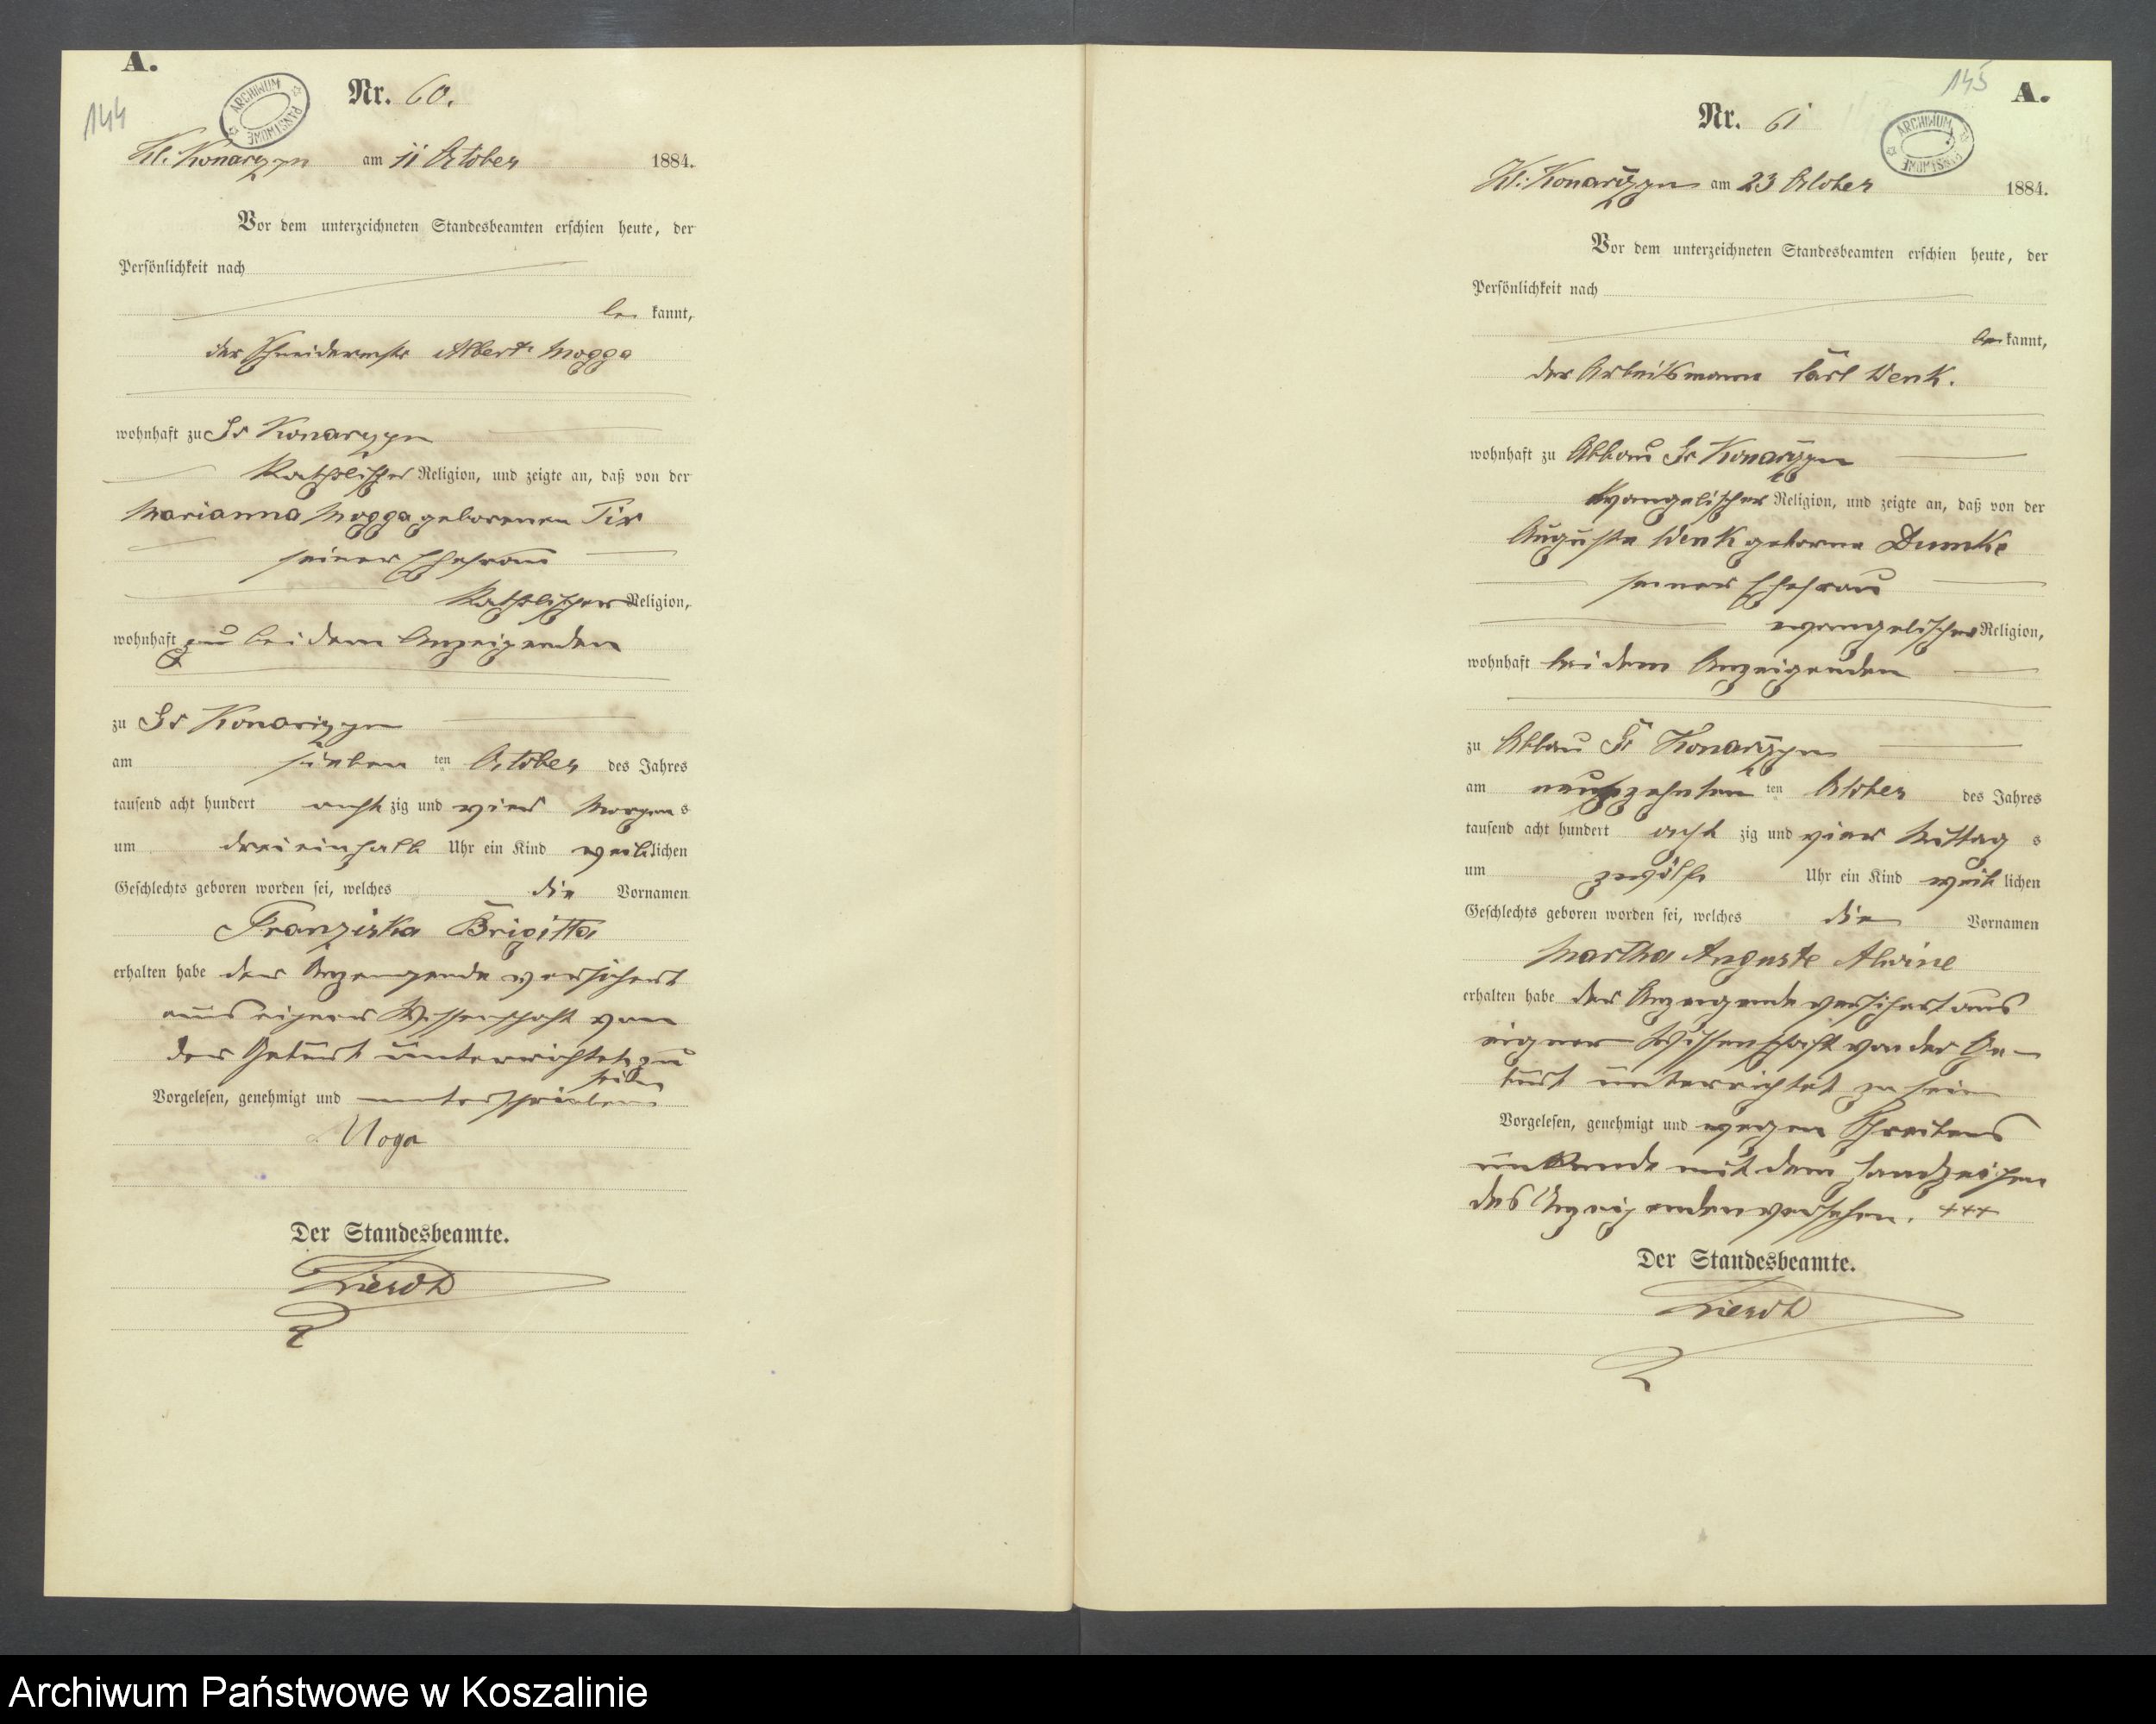 A.
144
ARCHIWUM PAŃSTWOWE
Nr. 60.
Kl. Konarczyn am 11 October 1884.
Vor dem unterzeichneten Standesbeamten erschien heute, der
Persönlichkeit nach
be kannt,
der Schneidermstr Albert Mogga
wohnhaft zu Gr Konarzyn
Katholischer Religion, und zeigte an, daß von der
Marianna Mogga geborenen
seiner Ehefrau
Katholischer Religion,
wohnhaft zu bei dem Anzeigenden
zu Gr Konarizyn
am sieben ten October des Jahres
tausend acht hundert acht zig und vier Morgens
um dreieinhalb Uhr ein Kind weiblichen
Geschlechts geboren worden sei, welches die Vornamen
Franziska Brigitta
erhalten habe der Anzeigende versichert
aus eigener Wissenschaft von
der Geburt unterrichtet zu
sein
Vorgelesen, genehmigt und unterschrieben
Moga
Der Standesbeamte.
145
A.
ARCHIWUM PAŃSTWOWE
Nr. 61
Kl: Konarczyn am 23 October 1884.
Vor dem unterzeichneten Standesbeamten erschien heute, der
Persönlichkeit nach
be kannt,
der Arbeitsmann Carl Wenk.
wohnhaft zu Abbau Gr Konarczyn
evangelischer Religion, und zeigte an, daß von der
Auguste Wenk geborne Dumke
seiner Ehefrau
evangelischer Religion,
wohnhaft bei dem Anzeigenden
zu Abbau Gr Konarczyn
am neunzehnten ten October des Jahres
tausend acht hundert acht zig und vier Mittag s
um zwölf Uhr ein Kind weib lichen
Geschlechts geboren worden sei, welches die Vornamen
Martha Auguste Alwine
erhalten habe der Anzeigende versichert aus
eigner Wissenschaft von der Ge-
burt unterrichtet zu sein
Vorgelesen, genehmigt und wegen Schreibens
unkunde mit dem Handzeichen
des Anzeigenden versehen. +++
Der Standesbeamte.
Archiwum Państwowe w Koszalinie